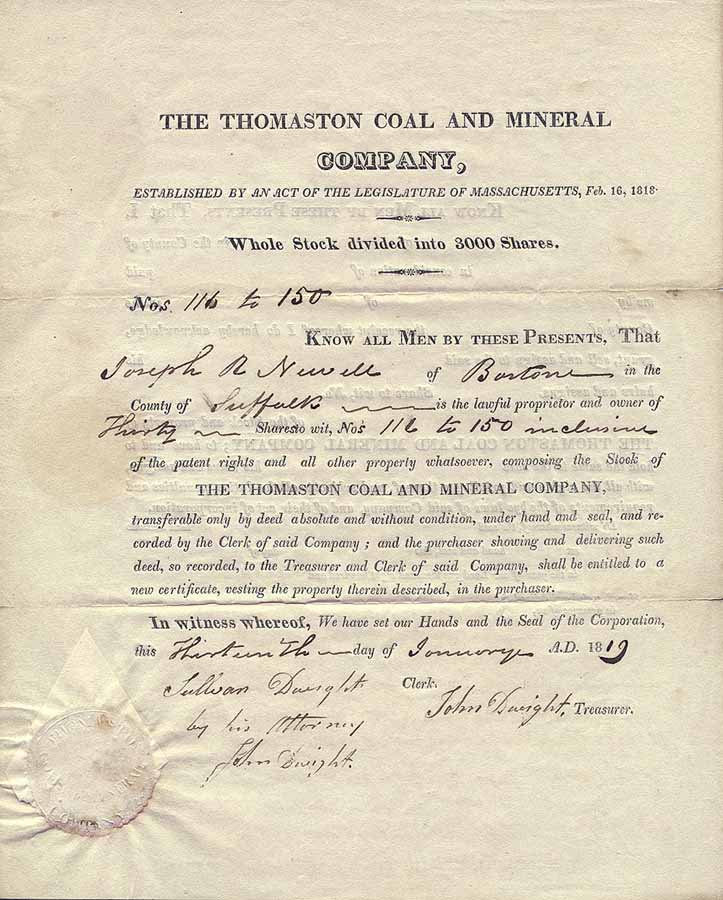 THE THOMASTON COAL AND MINERAL
COMPANY,
ESTABLISHED BY AN ACT OF THE LEGISLATURE OF MASSACHUSETTS, Feb. 16, 1818.
Whole Stock divided into 3000 Shares.
Nos. 116 to 150
KNOW ALL MEN BY THESE PRESENTS, That
Joseph R Newell of Boston in the
County of Suffolk is the lawful proprietor and owner of
Thirty Shares to wit, Nos 116 to 150 inclusive
of the patent rights and all other property whatsoever, composing the Stock of
THE THOMASTON COAL AND MINERAL COMPANY,
transferable only by deed absolute and without condition, under hand and seal, and re-
corded by the Clerk of said Company ; and the purchaser showing and delivering such
deed, so recorded, to the Treasurer and Clerk of said Company, shall be entitled to a
new certificate, vesting the property therein described, in the purchaser.
In witness whereof, We have set our Hands and the Seal of the Corporation,
this Thirteenth day of January A.D. 1819
Sullivan Dwight Clerk.
John Dwight, Treasurer.
by his Attorney
John Dwight.
COMPANY